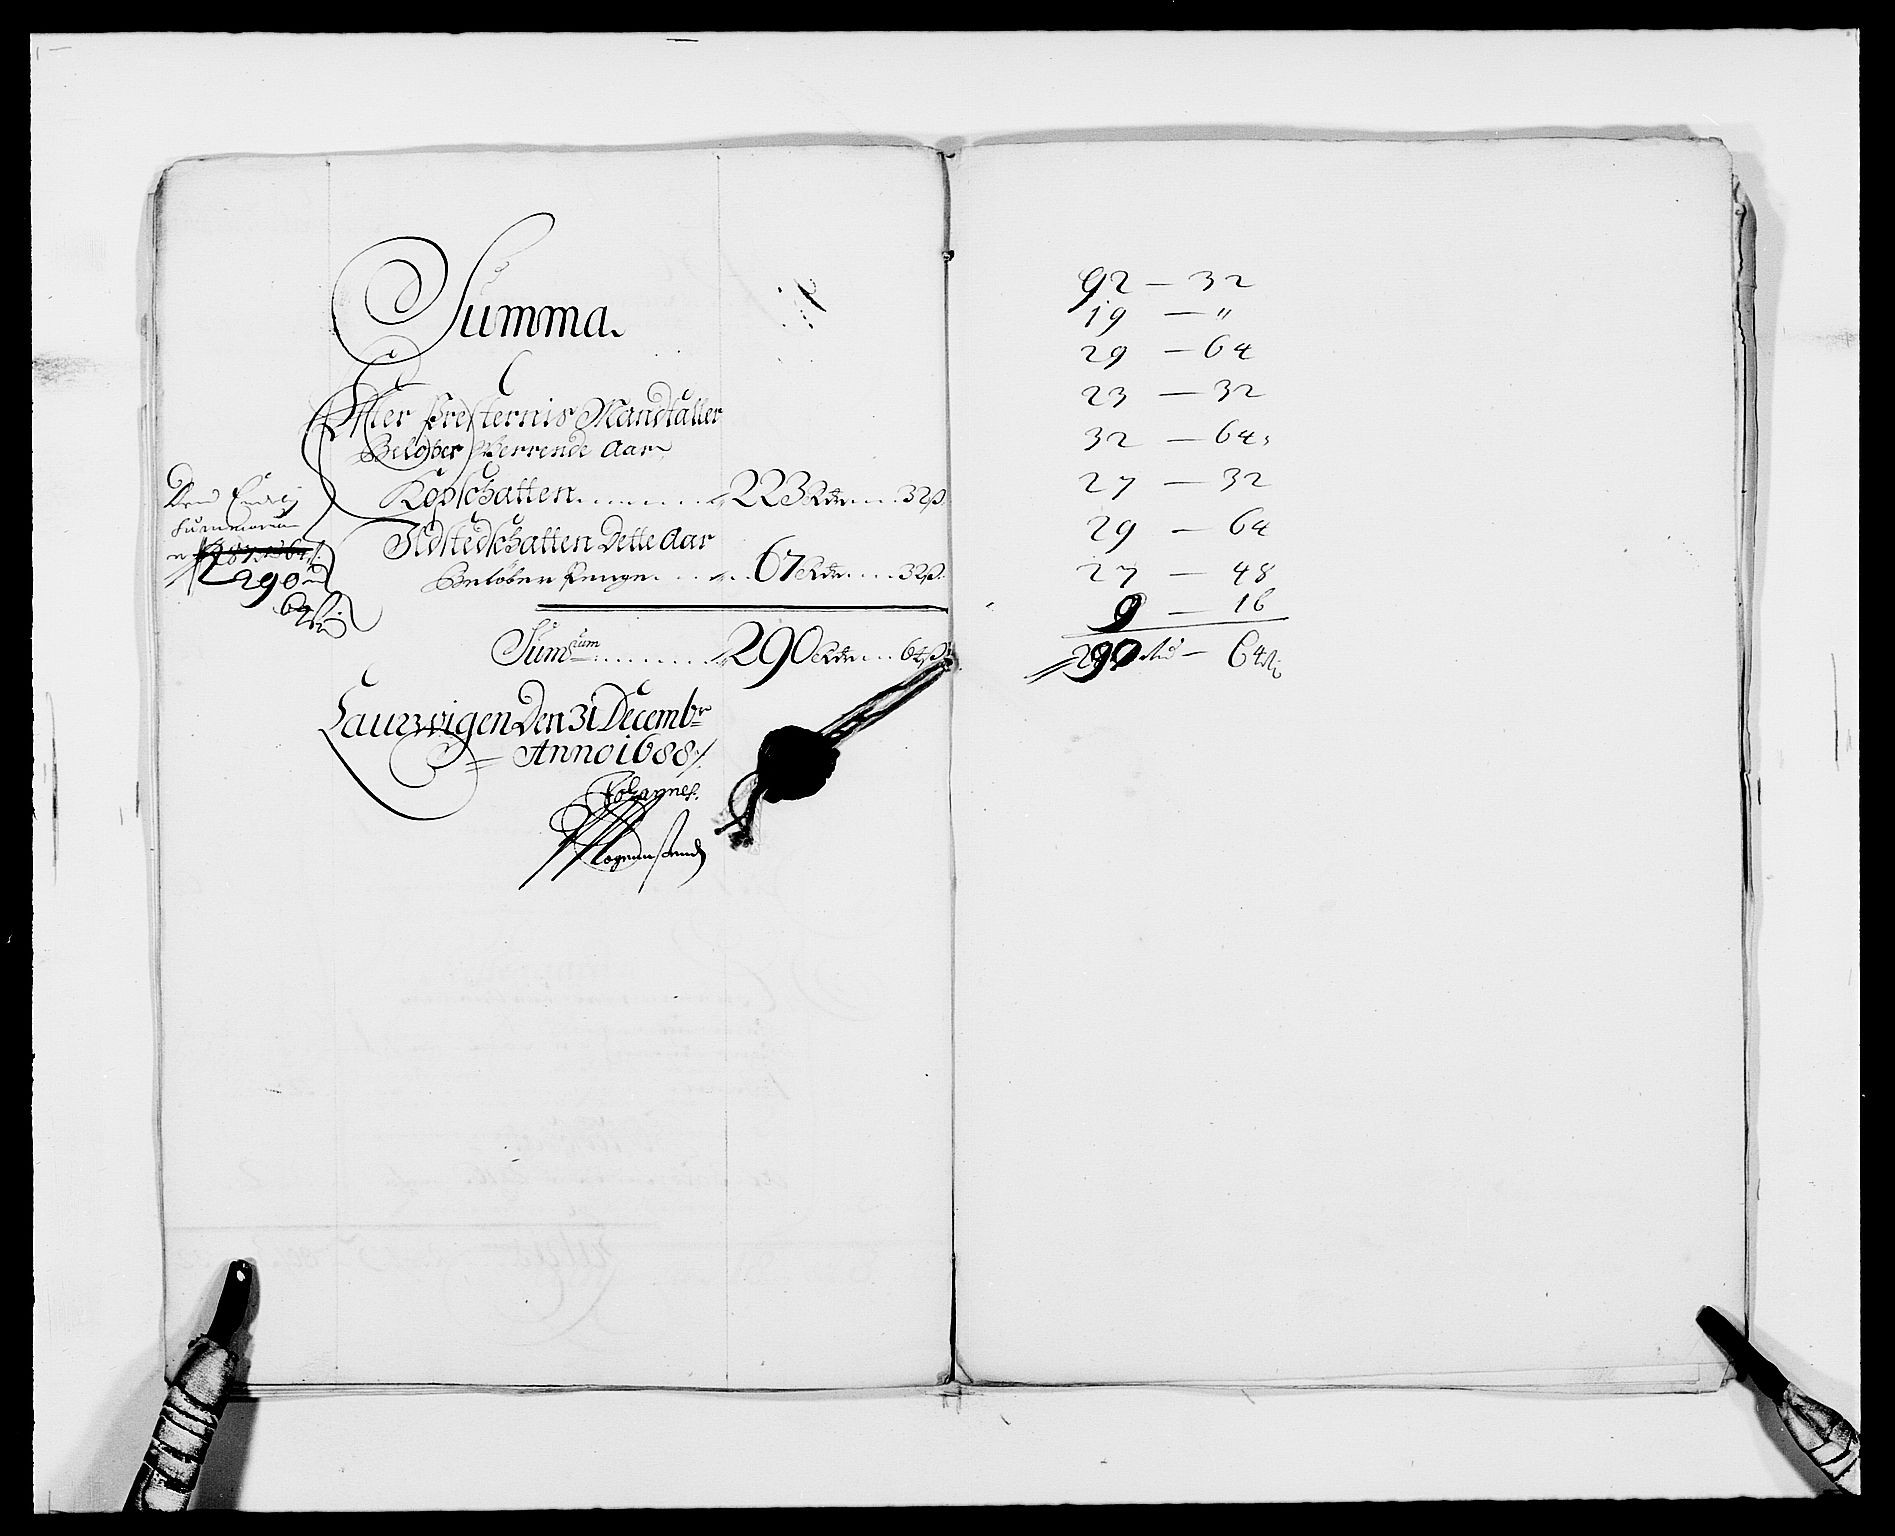 Summa.
Efter Presternis Mandtaller
Beløber Verrende Aar
Kopschatten 223 Rdr 32 ß
Ildstedschatten Dette Aar
Beløben Penge 67 Rdr 32 ß
Sum̄arum 290 Rdr 64 ß
Laurwigen Den 31 Decembr
Anno 1688
Johannes
Summarum
290
64 ß
92 — 32
19 — "
29 — 64
23 — 32
32 — 64
27 — 32
29 — 64
27 — 48
9 — 16
290 — 64 ß